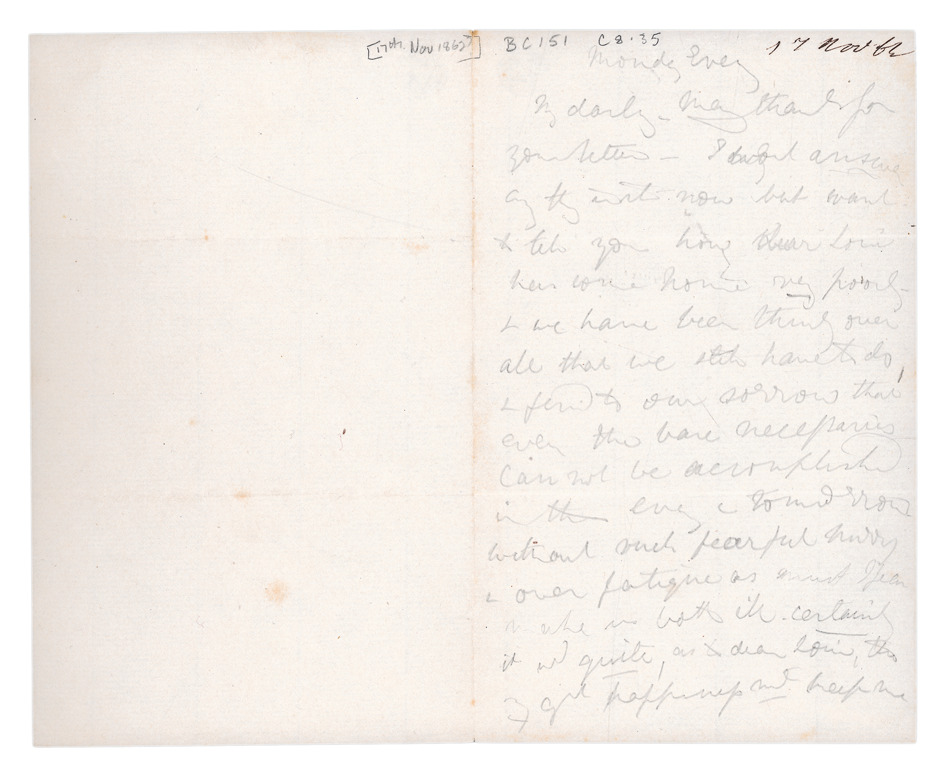 [17th. Nov 1862?] BC151 C8.35 17 Nov 62
Monday Eveg
My darlg. Many thanks for
your letter — I do not answer
any thg in it now but want
to tell you how dear Loui
has come home very poorly
& we have been thinkg over
all that we still have to do,
& find to our sorrow that
even the bare necessaries
cannot be accomplished
in the eveg & tomorrow
without such fearful hurry
& over fatigue as must I fear
make us both ill. certainly
it wd quite, as to dear Loui, tho
my gt happiness wd. keep me